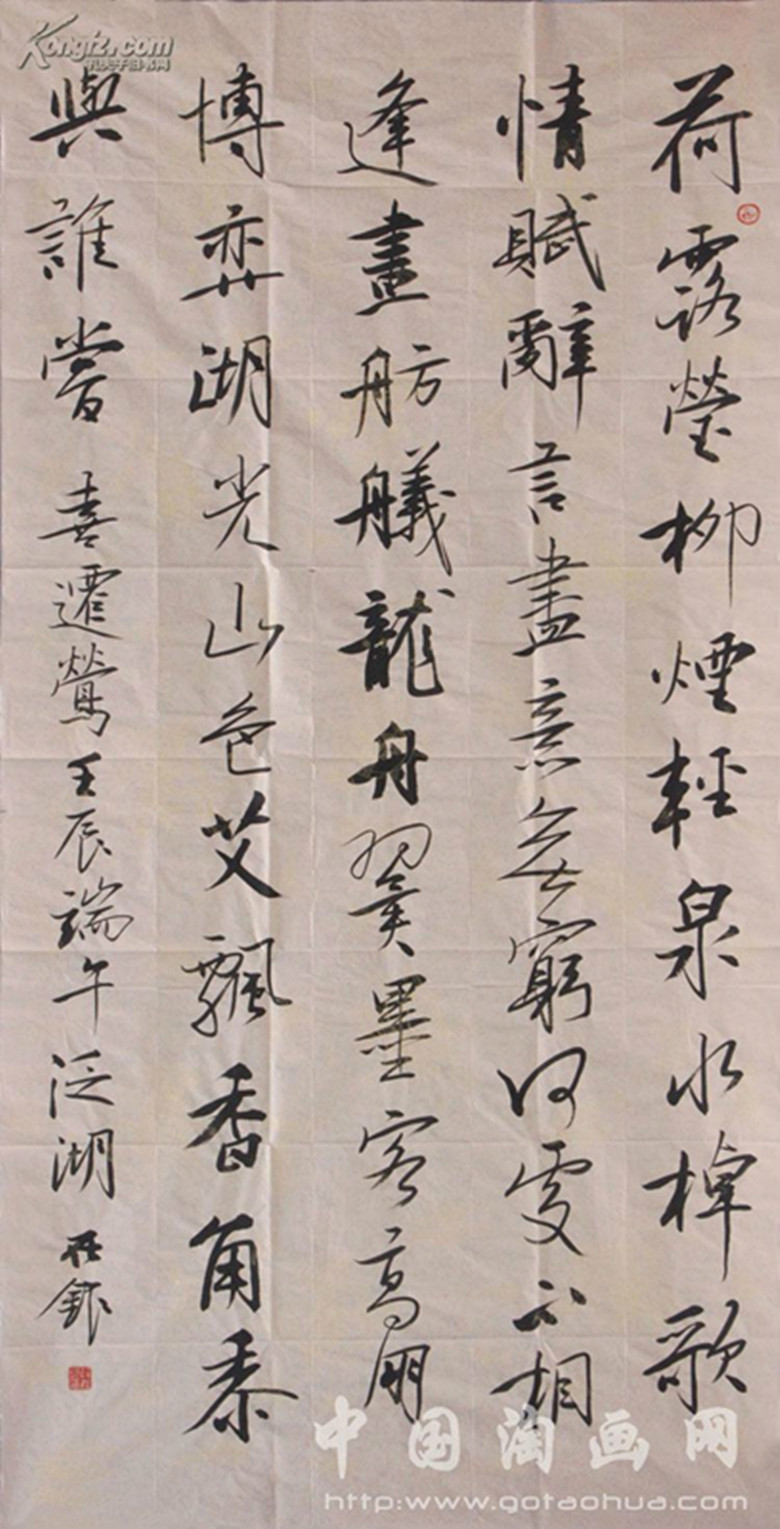 荷露瑩柳煙輕泉水棹歌
情賦辭言盡意無窮何處不相
逢畫舫艤龍舟翼墨客高朋
博弈湖光山色艾飄香角黍
與誰嘗 喜遷鶯 壬辰端午泛湖
Kongfz.com
孔夫子旧书网
中国淘画网
http://www.gotaohua.com